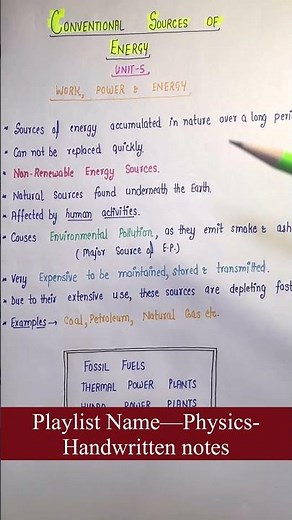 CONVENTIONAL SOURCES OF
ENERGY
UNIT-5
WORK, POWER & ENERGY
• Sources of energy accumulated in nature over a long peri
• Can not be replaced quickly.
• Non-Renewable Energy Sources.
• Natural Sources found underneath the Earth.
• Affected by human activities.
• Causes Environmental Pollution, as they emit smoke & ash
(Major Source of E.P.)
• Very Expensive to be maintained, stored & transmitted.
• Due to their extensive use, these sources are depleting fast
• Examples → Coal, Petroleum, Natural Gas etc.
FOSSIL FUELS
THERMAL POWER PLANTS
HYDRO POWER PLANTS
Playlist Name—Physics-
Handwritten notes